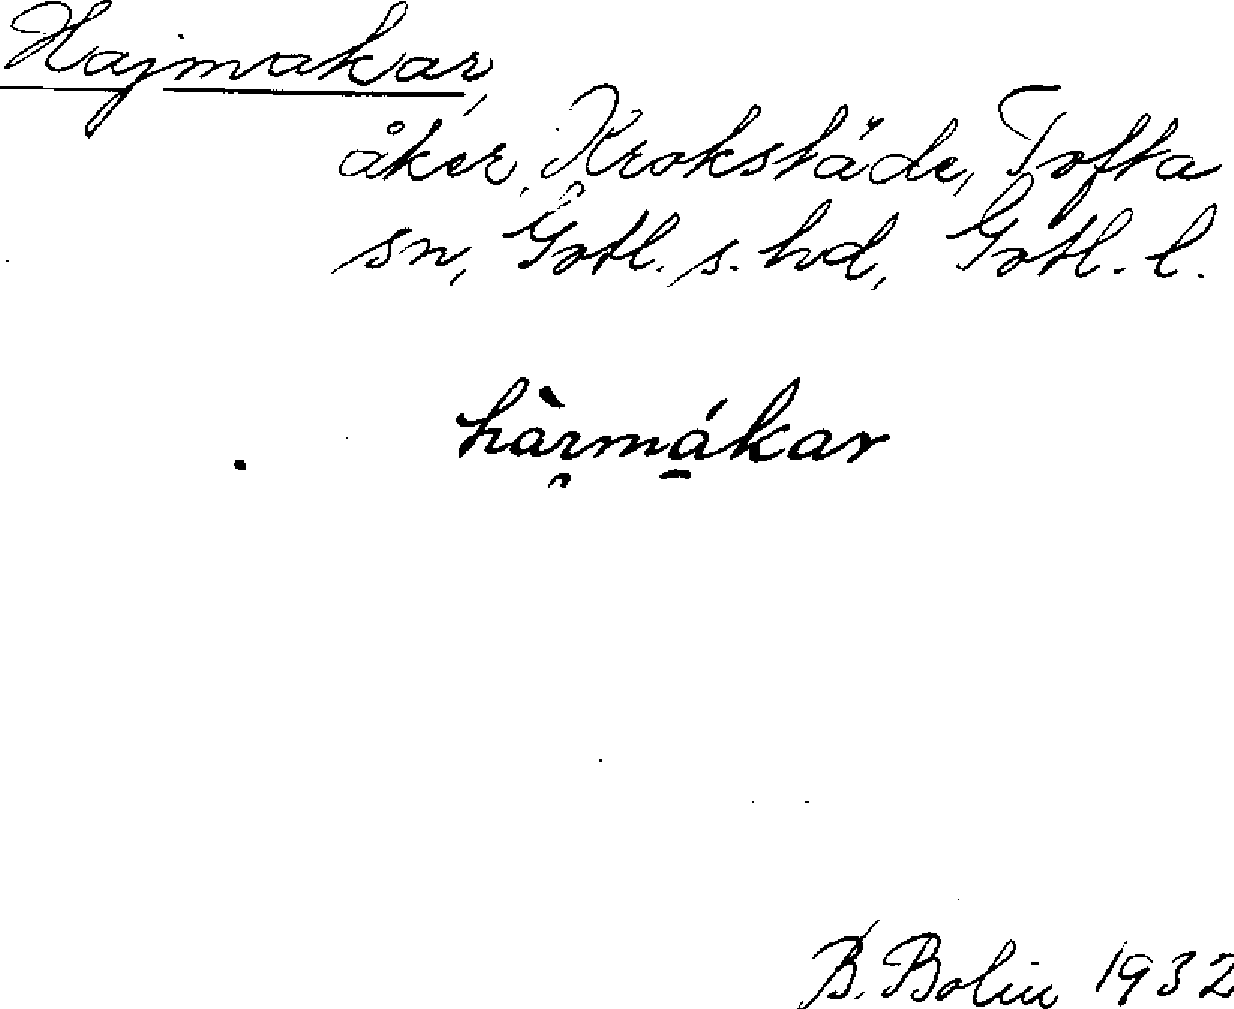 Hajmakar,
åker, Krokstäde, Tofta
sn, Gotl. s. hd, Gotl. l.
hàrmákar
B. Bolin 1932